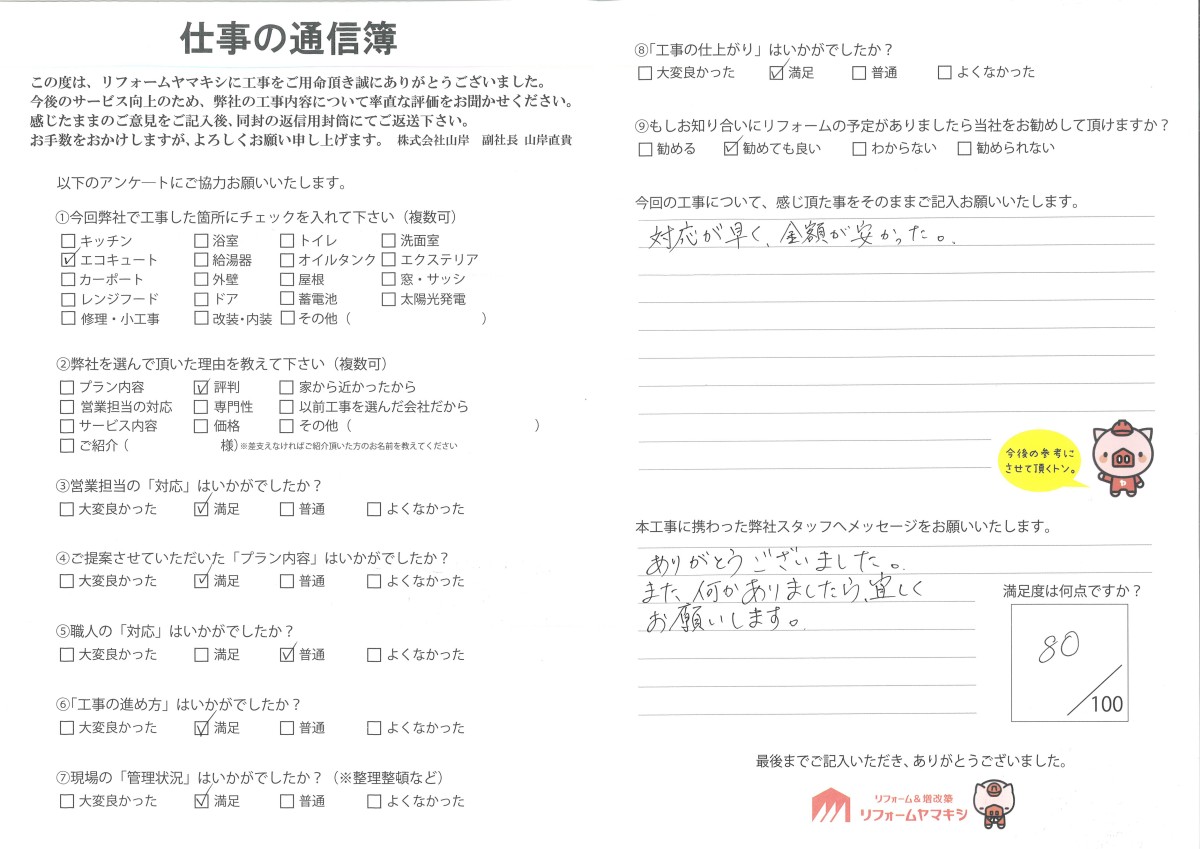 仕事の通信簿
この度は、リフォームヤマキシに工事をご用命頂き誠にありがとうございました。
今後のサービス向上のため、弊社の工事内容について率直な評価をお聞かせください。
感じたままのご意見をご記入後、同封の返信用封筒にてご返送下さい。
お手数をおかけしますが、よろしくお願い申し上げます。 株式会社山岸 副社長 山岸直貴
以下のアンケートにご協力お願いいたします。
①今回弊社で工事した箇所にチェックを入れて下さい（複数可）
□キッチン □浴室 □トイレ □洗面室
☑エコキュート □給湯器 □オイルタンク □エクステリア
□カーポート □外壁 □屋根 □窓・サッシ
□レンジフード □ドア □蓄電池 □太陽光発電
□修理・小工事 □改装・内装 □その他（ ）
②弊社を選んで頂いた理由を教えて下さい（複数可）
□プラン内容 ☑評判 □家から近かったから
□営業担当の対応 □専門性 □以前工事を選んだ会社だから
□サービス内容 □価格 □その他（ ）
□ご紹介（ 様）※差支えなければご紹介頂いた方のお名前を教えてください
③営業担当の「対応」はいかがでしたか？
□大変良かった ☑満足 □普通 □よくなかった
④ご提案させていただいた「プラン内容」はいかがでしたか？
□大変良かった ☑満足 □普通 □よくなかった
⑤職人の「対応」はいかがでしたか？
□大変良かった □満足 ☑普通 □よくなかった
⑥「工事の進め方」はいかがでしたか？
□大変良かった ☑満足 □普通 □よくなかった
⑦現場の「管理状況」はいかがでしたか？（※整理整頓など）
□大変良かった ☑満足 □普通 □よくなかった
⑧「工事の仕上がり」はいかがでしたか？
□大変良かった ☑満足 □普通 □よくなかった
⑨もしお知り合いにリフォームの予定がありましたら当社をお勧めして頂けますか？
□勧める ☑勧めても良い □わからない □勧められない
今回の工事について、感じ頂た事をそのままご記入お願いいたします。
対応が早く、金額が安かった。
今後の参考に
させて頂くトン。
本工事に携わった弊社スタッフへメッセージをお願いいたします。
ありがとうございました。
また、何かありましたら、宜しく
お願いします。
満足度は何点ですか？
80
／100
最後までご記入いただき、ありがとうございました。
リフォーム＆増改築
リフォームヤマキシ